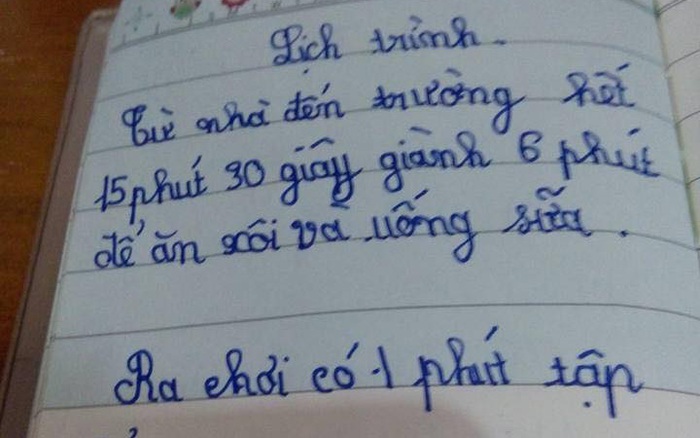 Lịch trình.
Từ nhà đến trường hết
15 phút 30 giây giành 6 phút
để ăn xôi và uống sữa.
Ra chơi có 1 phút tập